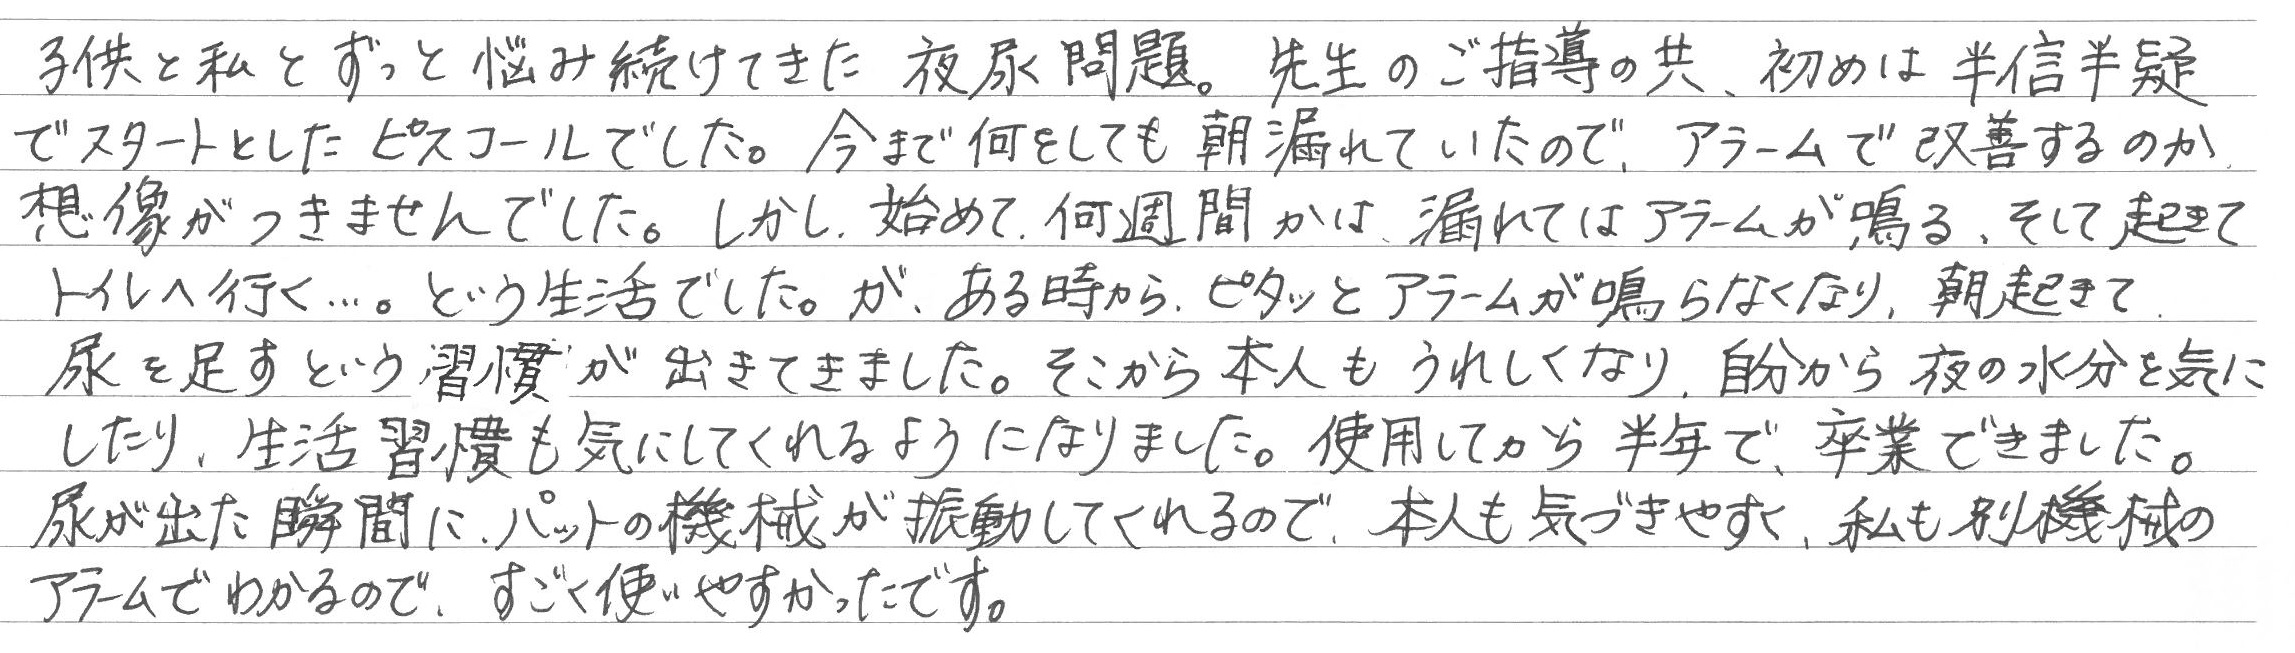 子供と私とずっと悩み続けてきた 夜尿問題。先生のご指導の共、初めは半信半疑
でスタートとしたピスコールでした。今まで何をしても朝漏れていたので、アラームで改善するのか、
想像がつきませんでした。しかし、始めて、何週間かは、漏れてはアラームが鳴る、そして起きて
トイレへ行く…。という生活でした。が、ある時から、ピタッとアラームが鳴らなくなり、朝起きて、
尿を足すという習慣が出きてきました。そこから本人もうれしくなり、自分から夜の水分を気に
したり、生活習慣も気にしてくれるようになりました。使用してから半年で、卒業できました。
尿が出た瞬間に、パットの機械が振動してくれるので、本人も気づきやすく、私も別機械の
アラームでわかるので、すごく使いやすかったです。